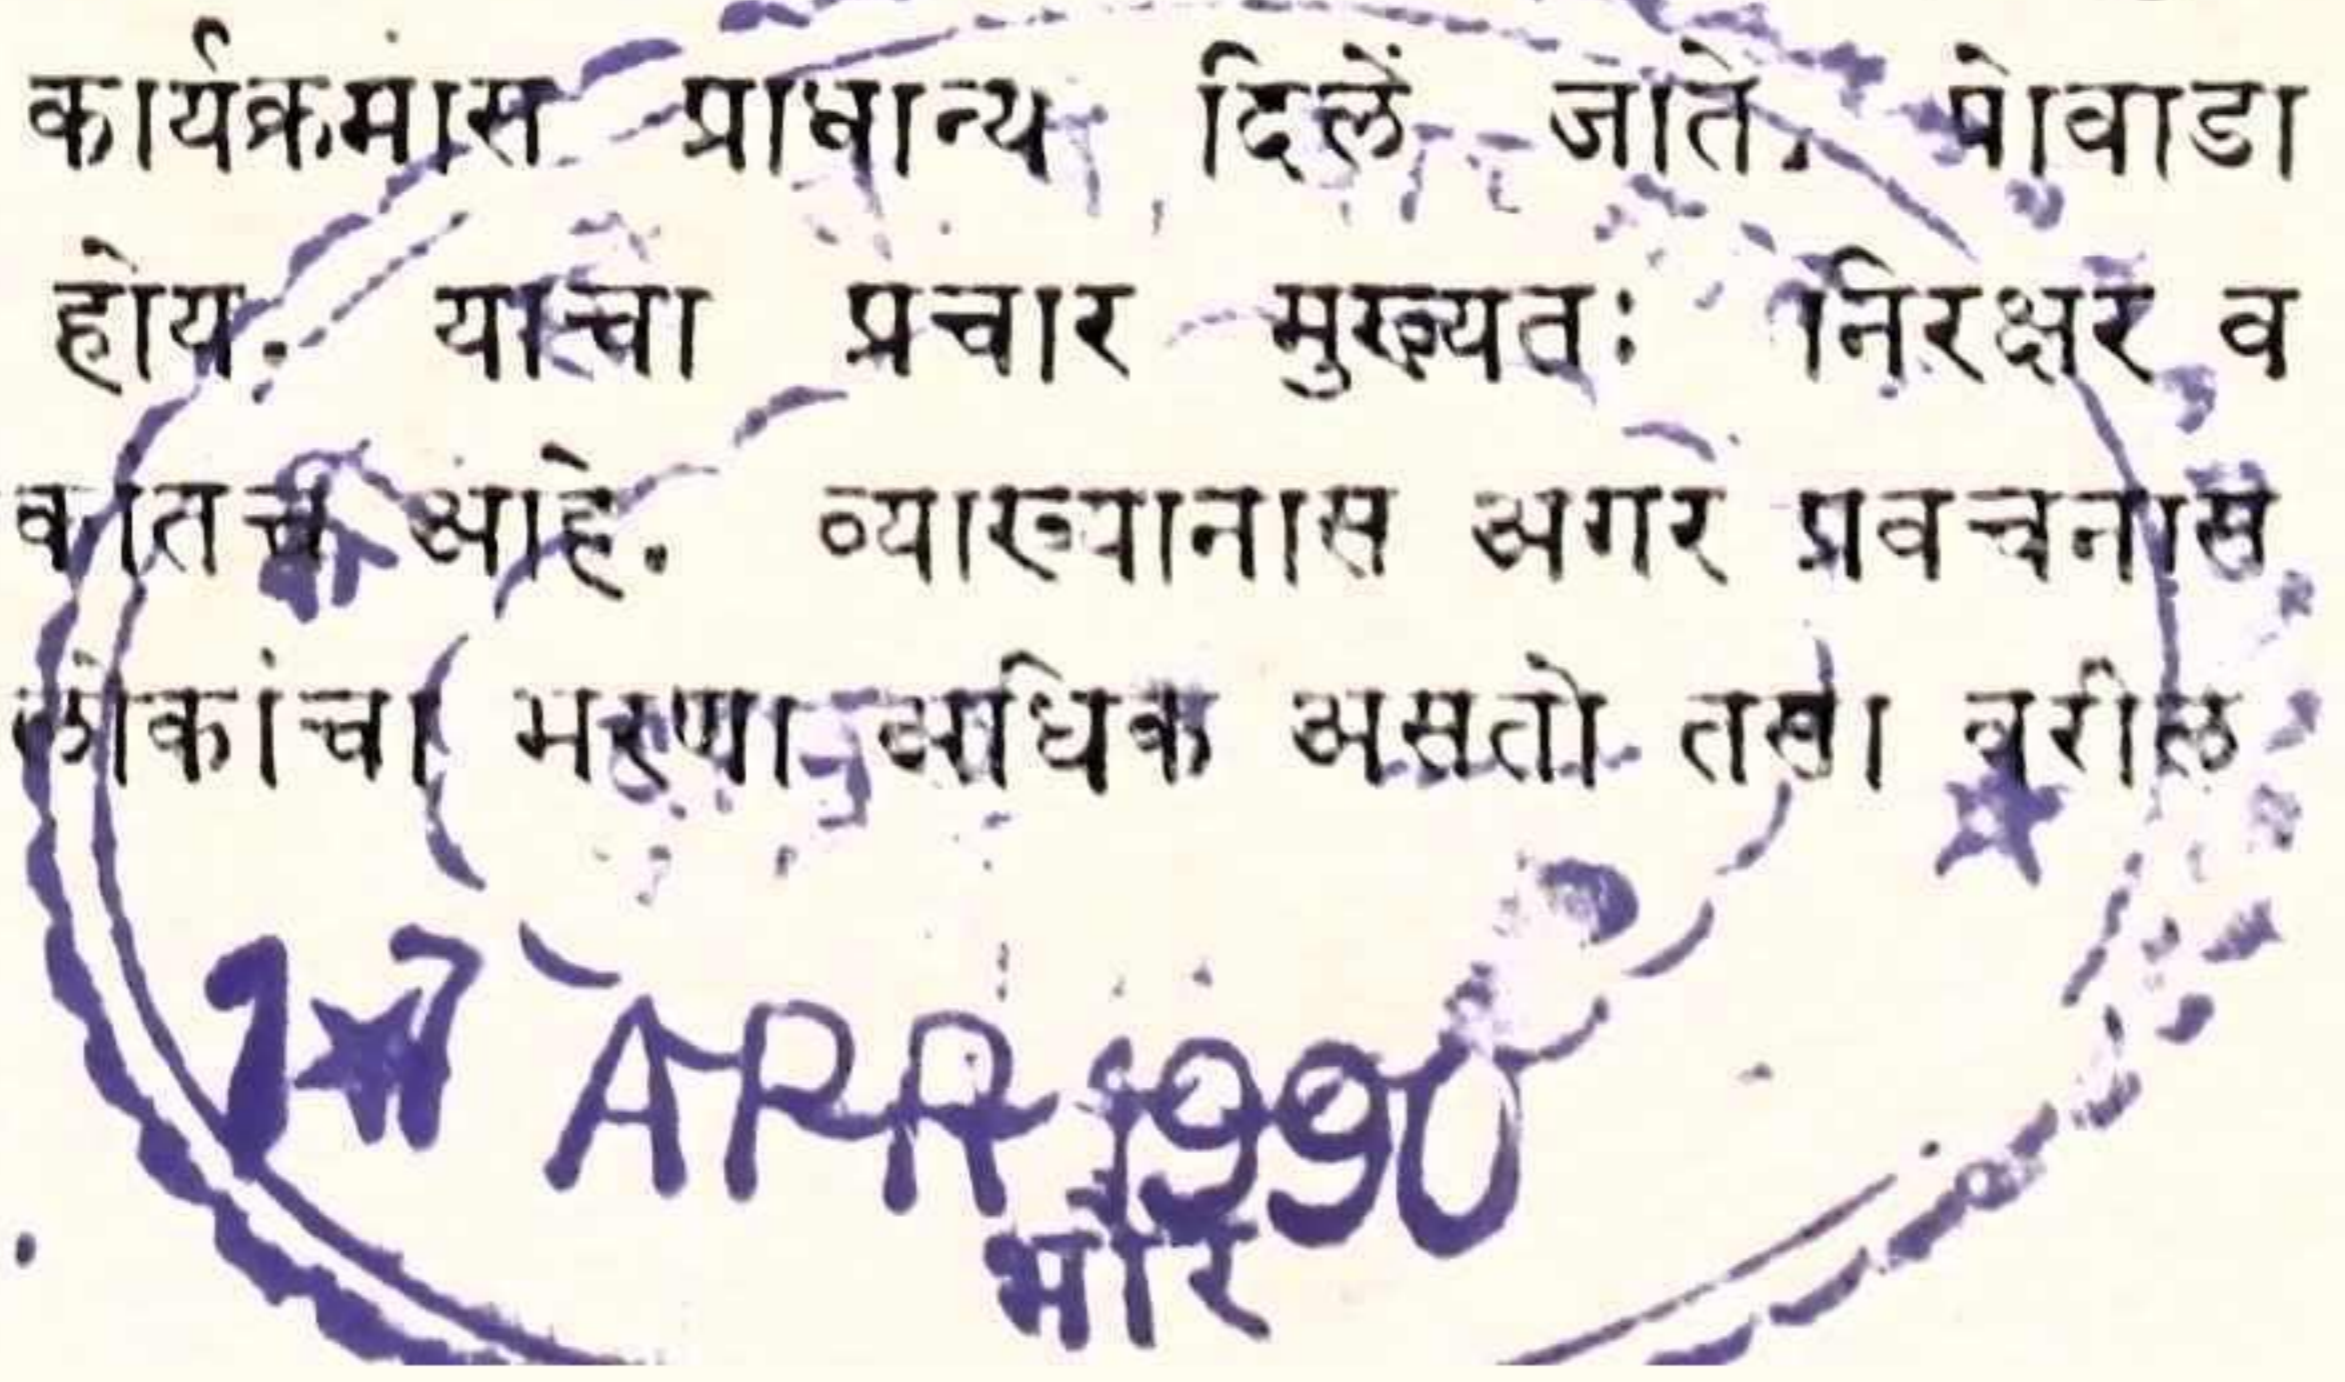 कार्यक्रमांस प्राधान्य दिलें जातें. पोवाडा
होय. याचा प्रचार मुख्यतः निरक्षर व
आहे. व्याख्यानास अगर प्रवचनास
लोकांचा भरणा अधिक असतो तसा वरील
17 APR 1990
भोर